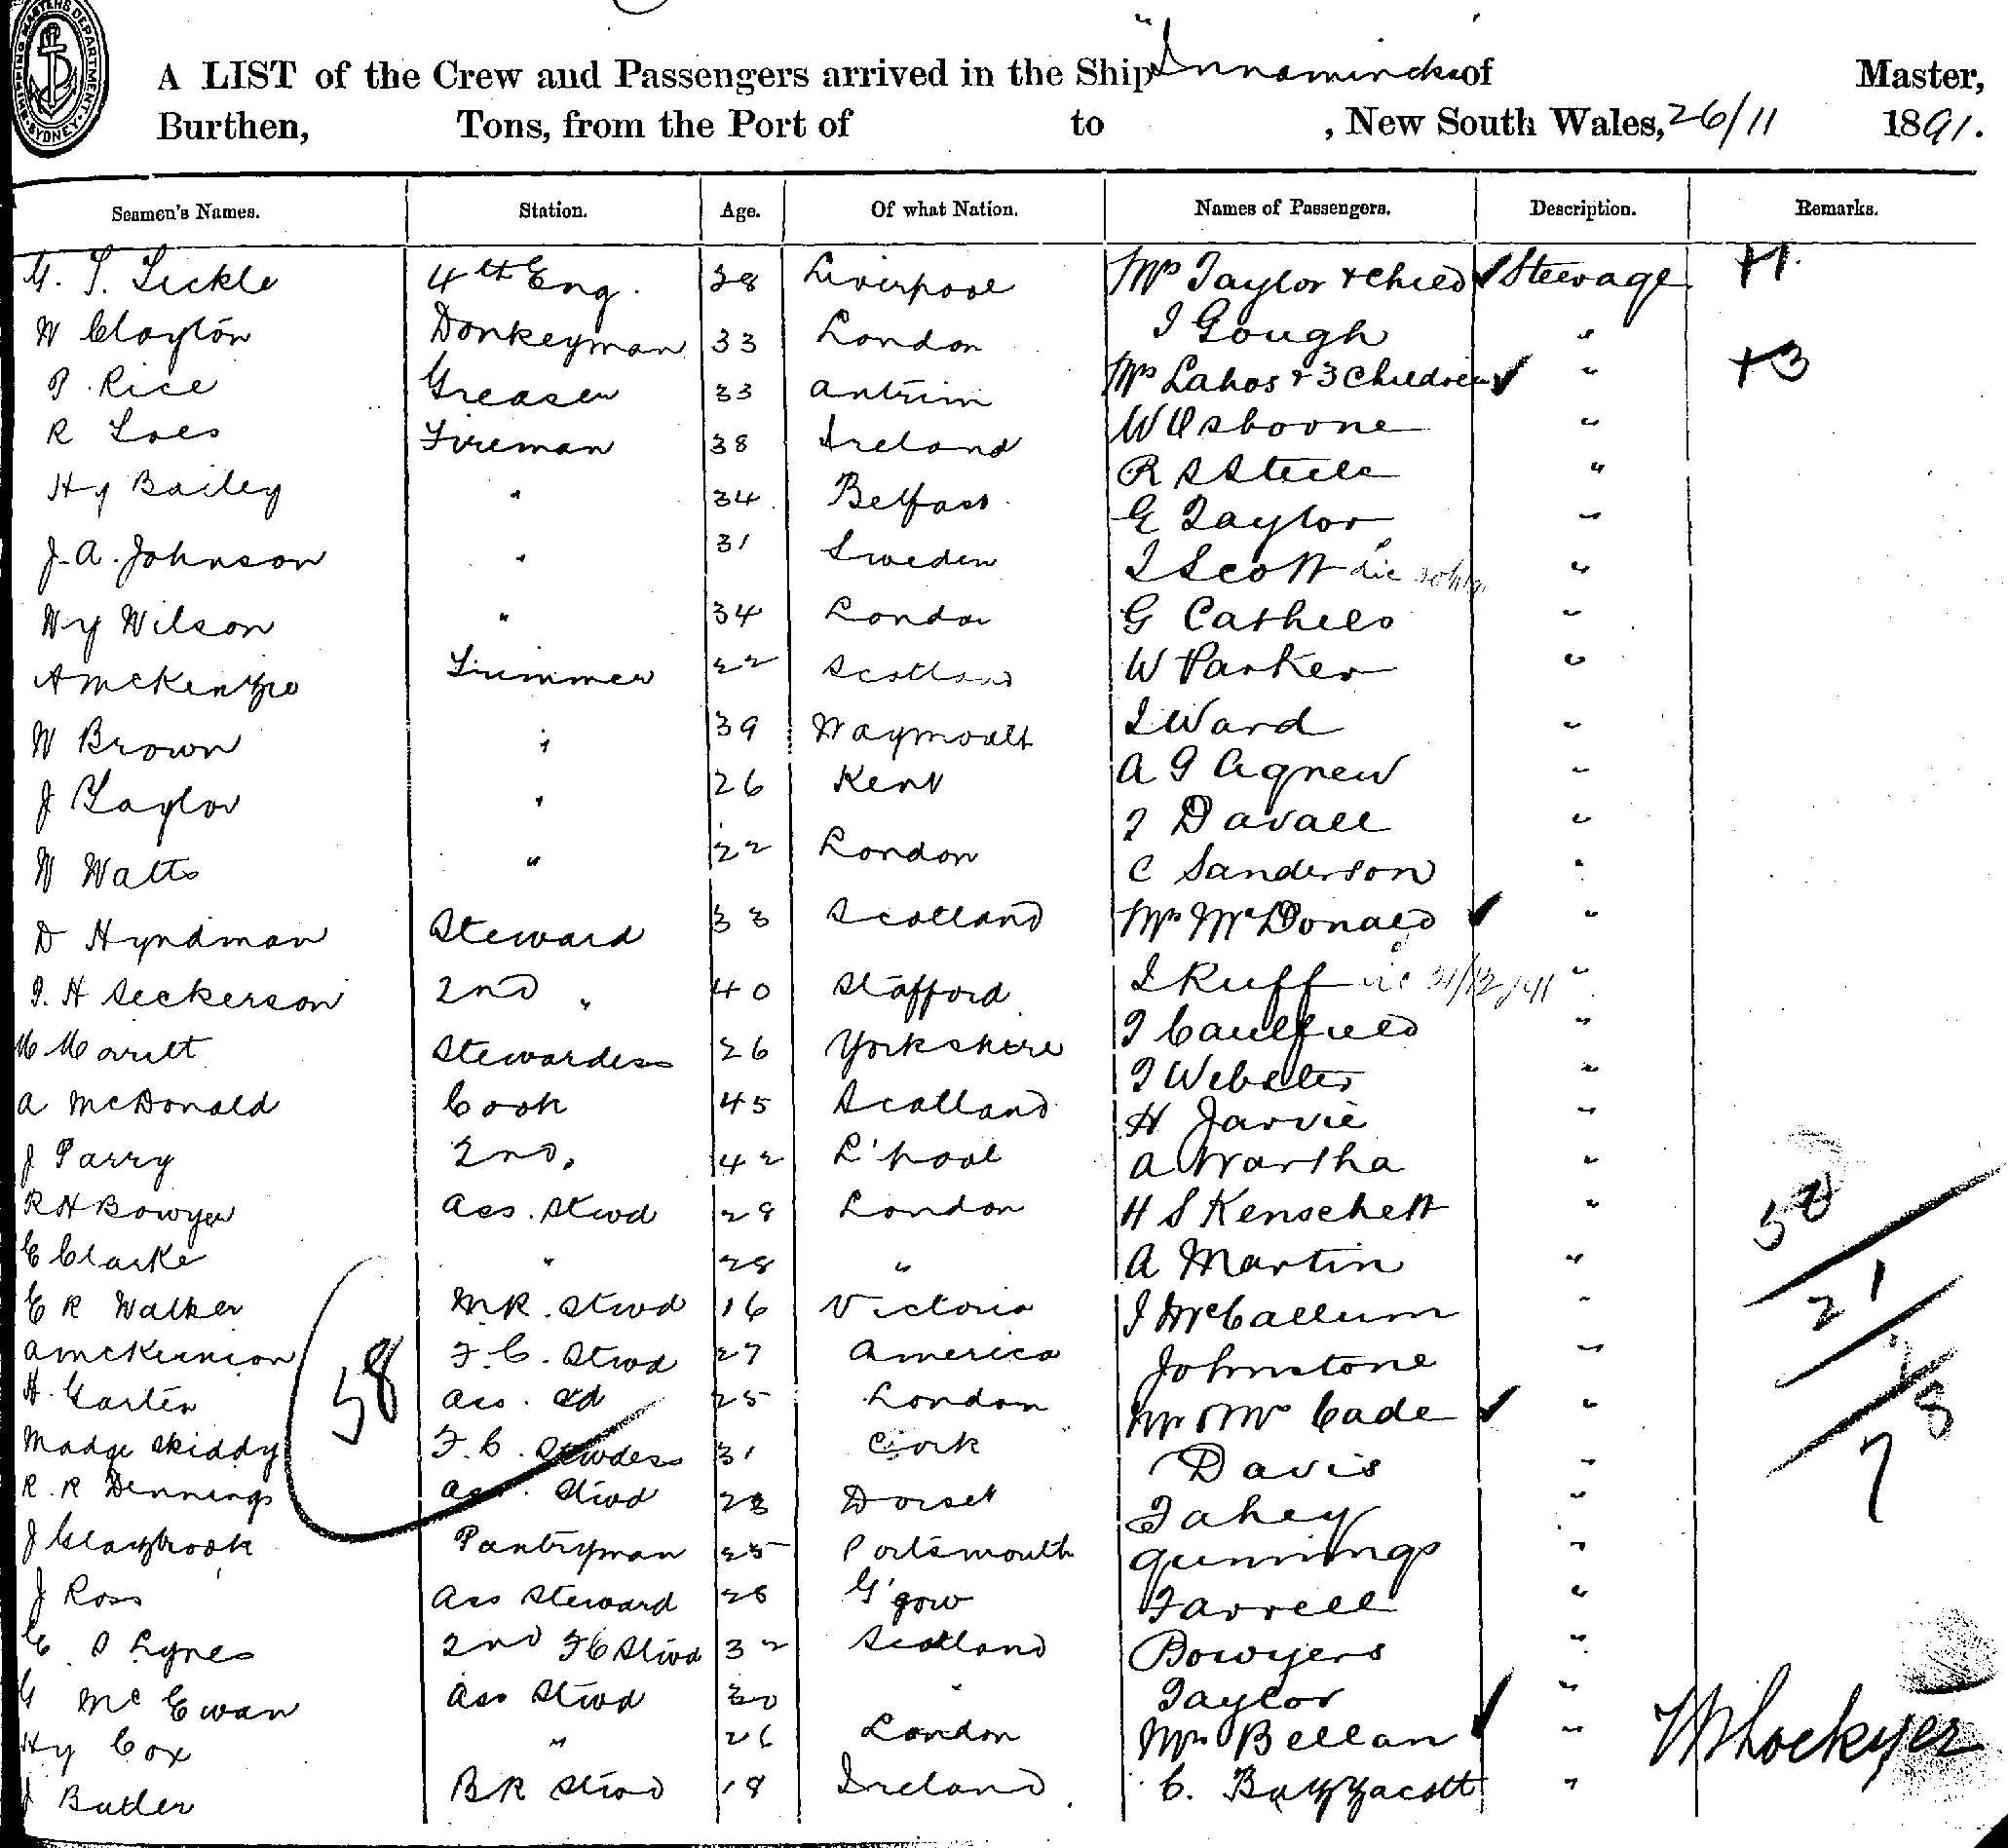 SHIPPING MASTERS DEPARTMENT SYDNEY
A LIST of the Crew and Passengers arrived in the Ship "Innamincka of Master,
Burthen, Tons, from the Port of to , New South Wales, 26/11 1891.
Seamen's Names. Station. Age. Of what Nation. Names of Passengers. Description. Remarks.
4th Eng. 38 Liverpool Mrs Taylor & Child ✓ Steerage +1.
W Clayton Donkeyman 33 London J Gough "
P. Rice Greaser 33 Antrim Mrs & 3 Children ✓ " +3
R Fireman 38 Ireland W Osborne "
Hy Bailey " 34 Belfast R S Steele "
J. A. Johnson " 31 Sweden G Taylor "
Hy Wilson " 34 London J Scott "
A McKenzie Trimmer 22 Scotland G Cathels "
W Brown " 39 Waymouth W Parker "
J Taylor " 26 Kent J Ward "
W Watts " 22 London A G Agnew "
D Hyndman Steward 33 Scotland J Davall "
J. H Seckerson 2nd " 40 Stafford C Sanderson "
Stewardess 26 Yorkshire Mrs McDonald ✓ "
A McDonald Cook 45 Scotland J Ruff 31/12/91 "
J Parry 2nd " 42 L'pool J Caulfield "
R H Bowyer Ass. Stwd 28 London J Webster "
C Clarke " 28 " H Jarvie "
E R Walker M R. Stwd 16 Victoria A Wartha "
A McKernion F. C. Stwd 27 America H S Kenschett "
H. Ass. 25 London A Martin "
Madge Skiddy F. C. Stwdess 31 Cork J McCallum "
R. R Dennings Ass. Stwd 23 Dorset Johnstone "
J Claybrook Pantryman 25 Portsmouth Mr & Mrs Cade ✓ "
J Ross Ass Steward 28 G'gow Davis "
C. S Lynes 2nd F C Stwd 32 Scotland Fahey "
G McEwan Ass Stwd 30 " Gunnings "
Hy Cox " 26 London Farrell "
J Butler B R Stwd 18 Ireland Bowyers "
Taylor "
Mrs Bellan ✓ "
C. Bazzacott "
58
58
21
28
7
Lockyer